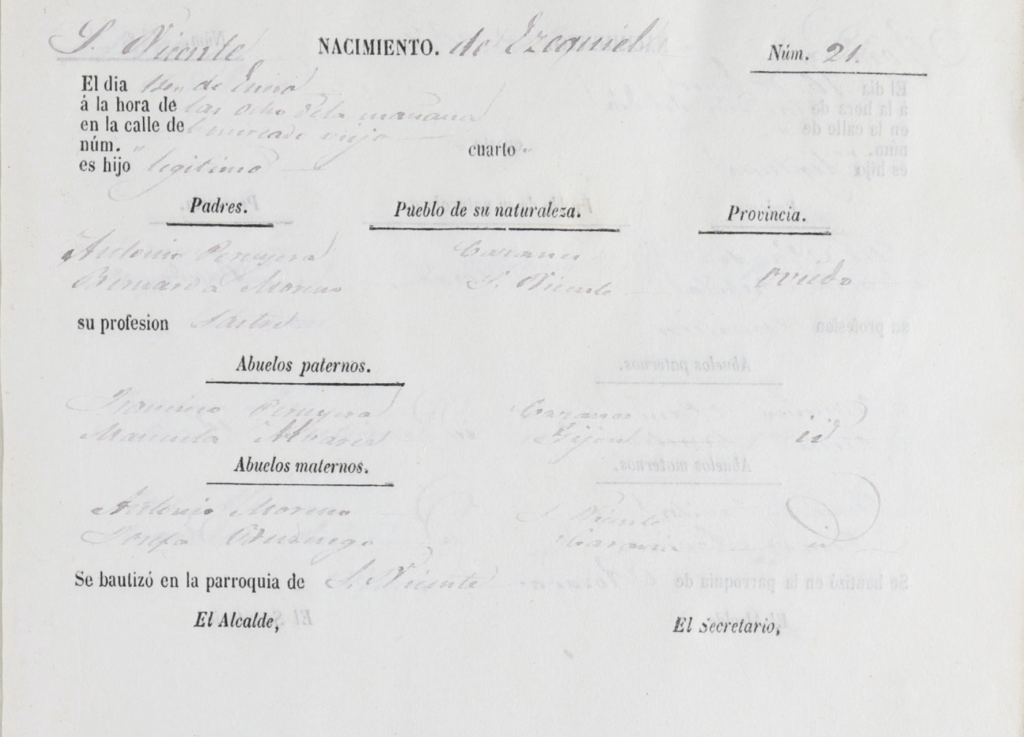 S. Vicente NACIMIENTO. de Ezequiel Núm. 21.
El dia de Enero
á la hora de las ocho de la mañana
en la calle de mercado viejo
núm. " cuarto "
es hijo legitimo
Padres. Pueblo de su naturaleza. Provincia.
Antonio Peruyera Cazanes
Bernarda Moreno S. Vicente Oviedo
su profesion
Abuelos paternos.
Francisco Peruyera Cazanes
Manuela Alvarez Gijon id
Abuelos maternos.
Antonio Moreno S. Vicente
Josefa id
Se bautizó en la parroquia de S. Vicente
El Alcalde, El Secretario,